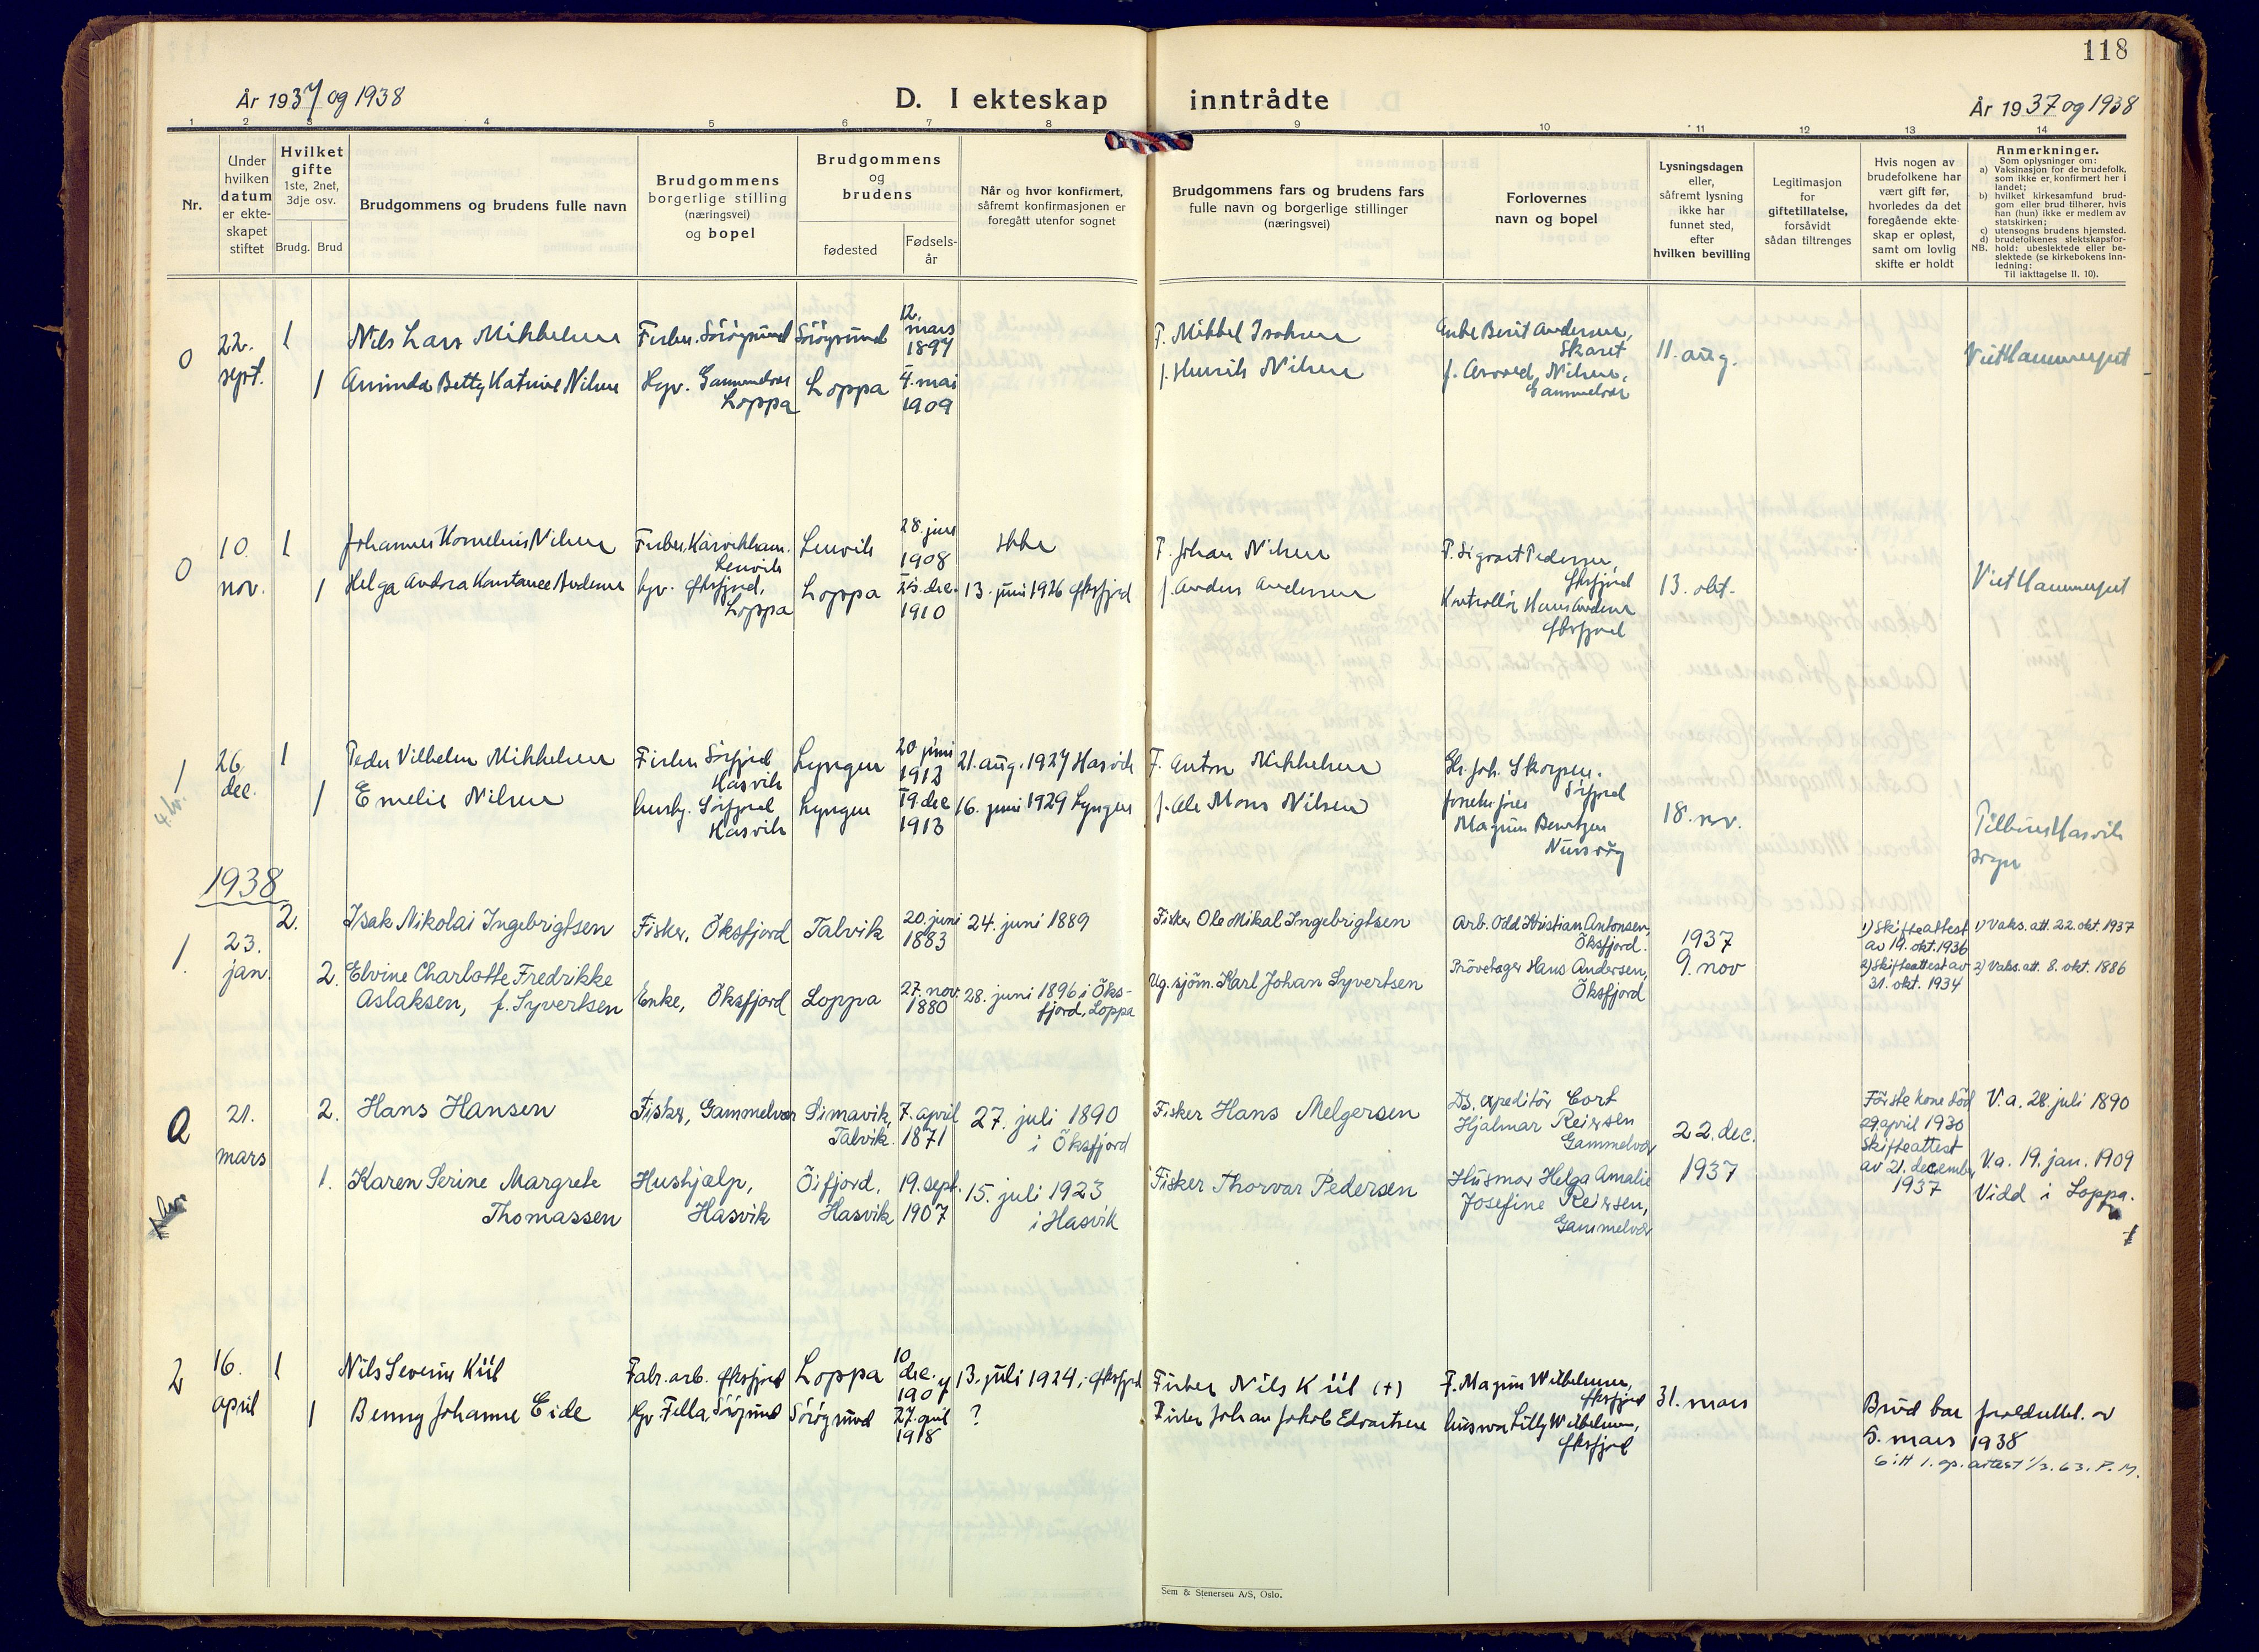 118
År 1937 og 1938
D. I ekteskap inntrådte
År 1937 og 1938
1 2 3 4 5 6 7 8 9 10 11 12 13 14
Nr.
Under hvilken datum er ekte-skapet stiftet
Hvilket gifte
1ste, 2net, 3dje osv.
Brudg. Brud
Brudgommens og brudens fulle navn
Brudgommens borgerlige stilling (næringsvei) og bopel
Brudgommens og brudens
fødested
Fødsels-år
Når og hvor konfirmert, såfremt konfirmasjonen er foregått utenfor sognet
Brudgommens fars og brudens fars fulle navn og borgerlige stillinger (næringsvei)
Forlovernes navn og bopel
Lysningsdagen eller, såfremt lysning ikke har funnet sted, efter hvilken bevilling
Legitimasjon for giftetillatelse, forsåvidt sådan tiltrenges
Hvis nogen av brudefolkene har vært gift før, hvorledes da det foregående ekte-skap er opløst, samt om lovlig skifte er holdt
Anmerkninger.
Som oplysninger om:
a) Vaksinasjon for de brudefolk, som ikke er konfirmert her i landet;
b) hvilket kirkesamfund brud-gom eller brud tilhører, hvis han (hun) ikke er medlem av statskirken;
c) utensogns brudens hjemsted.
d) brudefolkenes slektskapsfor-hold: ubeslektede eller be-slektede (se kirkebokens inn-ledning:
NB. Til iakttagelse II. 10).
0 22. sept. 1 Nils Lars Mikkelsen Fisker, Sörögsund Sörögsund 12. mars 1897 F. Mikkel Isaksen Anbe Berit Andersen, Skaret 11. aug. Viet Hammerfest
1 Aminda Betty Katrine Nilsen Hgv. Gammelvær Loppa Loppa 4. mai 1909 f. Henrik Nilsen f. Arvoed Nilsen, Gammelvær
0 10. nov. 1 Johannes Kornelius Nilsen Fisker, Kårvikhavn. Lenvik Lenvik 28. juni 1908 Ikke F. Johan Nilsen F. Sigvart Pedersen, Øksfjord 13. okt. Viet Hammerfest
1 Helga Andrea Konstanse Andersen hgv. Øksfjord, Loppa Loppa 25. dec. 1910 13. juni 1926 Øksfjord f. Anders Andersen Kontrollör Hans Andersen Øksfjord
1 26. dec. 1 Peder Vilhelm Mikkelsen Fisker Sörfjord Hasvik Lyngen 20. juni 1912 21. aug. 1927 Hasvik F. Anton Mikkelsen Gb. Joh. Skorpen. Sörfjord 18. nov. Tilhører Hasvik sogn
1 Emelie Nilsen husbg. Sörfjord Hasvik Lyngen 19. dec 1913 16. juni 1929 Lyngen f. Ole Mons Nilsen Magnus Berntzen
1938
1. 23. jan. 2. Isak Nikolai Ingebrigtsen Fisker, Öksfjord Talvik 20. juni 1883 24. juni 1889 Fisker Ole Mikal Ingebrigtsen Arb. Odd Kristian Antonsen, Öksfjord. 1937 9. nov 1) Skifteattest av 19. okt. 1936 1) Vaks. att. 22. okt. 1937
2. Elvine Charlotte Fredrikke Aslaksen, f. Syvertsen Enke, Öksfjord Loppa 27. nov. 1880 28. juni 1896 i Öks-fjord, Loppa Ug. sjöm. Karl Johan Syvertsen Prövetager Hans Andersen, Öksfjord 2) Skifteattest av 31. okt. 1934 2) Vaks. att. 8. okt. 1886
0 21. mars 2. Hans Hansen Fisker, Gammelvær Simavik, Talvik. 7. april 1871 27. juli 1890 i Öksfjord Fisker Hans Melgersen Ds. expeditör Cort Hjalmar Reiersen Gammelvær 22. dec. 1937 Förste kone död 29. april 1930 Skifteattest av 21. december 1937 V. a. 28. juli 1890
1. Karen Serine Margrete Thomassen Hushjælp, Hasvik Öifjord, Hasvik 19. sept. 1907 15. juli 1923 i Hasvik Fisker Thorvar Pedersen Husmor Helga Amalie Josefine Reiersen, Gammelvær V. a. 19. jan. 1909 Vidd i Loppa.
2 16. april 1 Nils Severin Kiil Fabr. arb. Øksfjord Loppa 10 dec. 1907 13. juli 1924 i Øksfjord Fisker Nils Kiil (+) F. Magnus Wilhelmsen, Øksfjord 31. mars Brud bar foreldretil. av 5. mars 1938
1 Benny Johanne Eide Hgv. Fella, Sörögsund Sörögsund 27. april 1918 ? Fisker Johan Jakob Edvartsen husmor Lilly Wilhelmsen, Øksfjord Gitt 1. gp. attest 1/3. 63. P. M.
Sem & Stenersen A/S, Oslo.